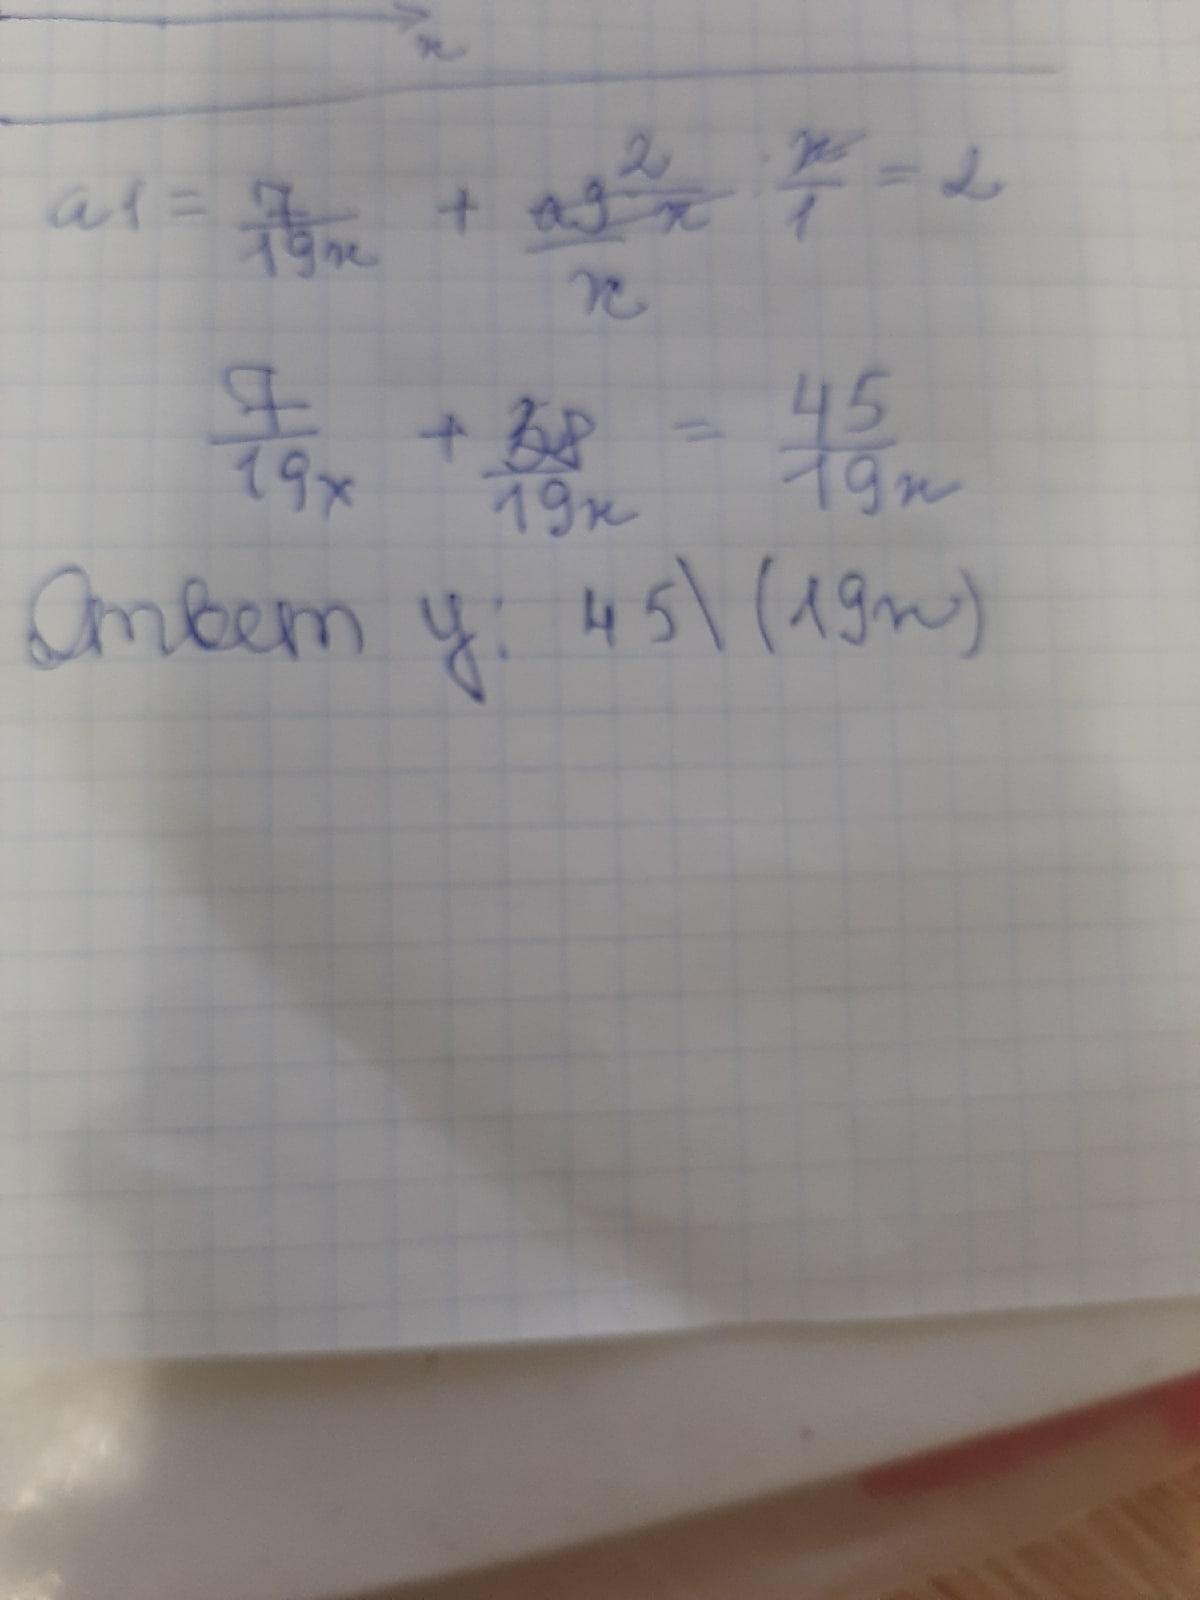 x
a1 = 7/19x + 2/x · x/1 = 2
x
7/19x + 38/19x = 45/19x
Ответ у: 45\(19x)